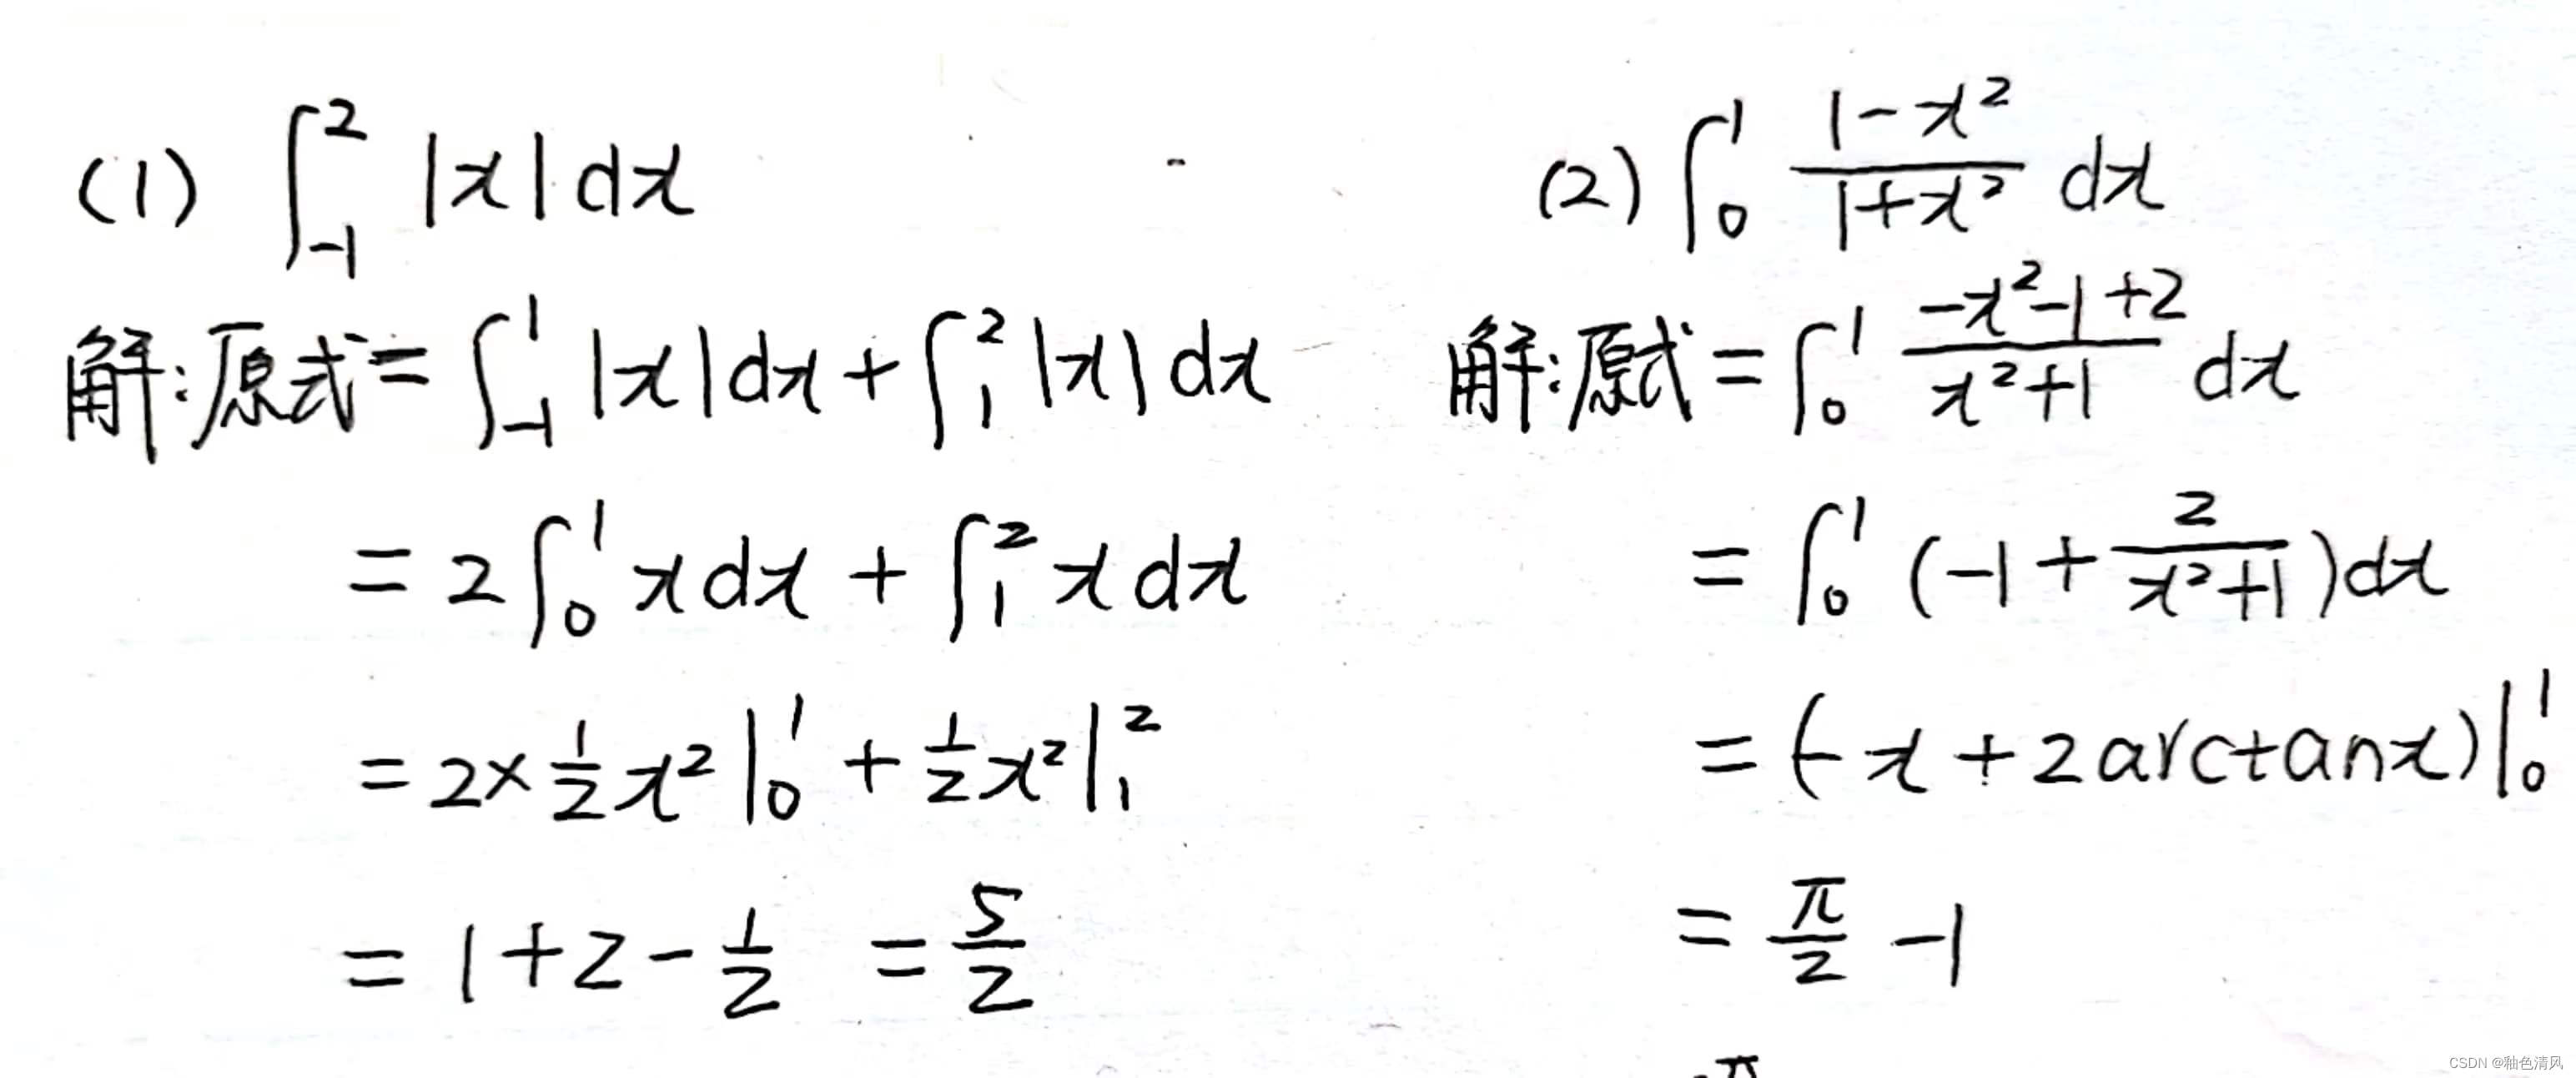 (1) ∫_{-1}^{2} |x| dx
解:原式= ∫_{-1}^{1} |x| dx + ∫_{1}^{2} |x| dx
= 2∫_{0}^{1} x dx + ∫_{1}^{2} x dx
= 2 × \frac{1}{2} x² |_{0}^{1} + \frac{1}{2} x² |_{1}^{2}
= 1 + 2 - \frac{1}{2} = \frac{5}{2}
(2) ∫_{0}^{1} \frac{1-x²}{1+x²} dx
解:原式= ∫_{0}^{1} \frac{-x²-1+2}{x²+1} dx
= ∫_{0}^{1} (-1 + \frac{2}{x²+1}) dx
= (-x + 2arctanx) |_{0}^{1}
= \frac{π}{2} - 1
π
CSDN @釉色清风